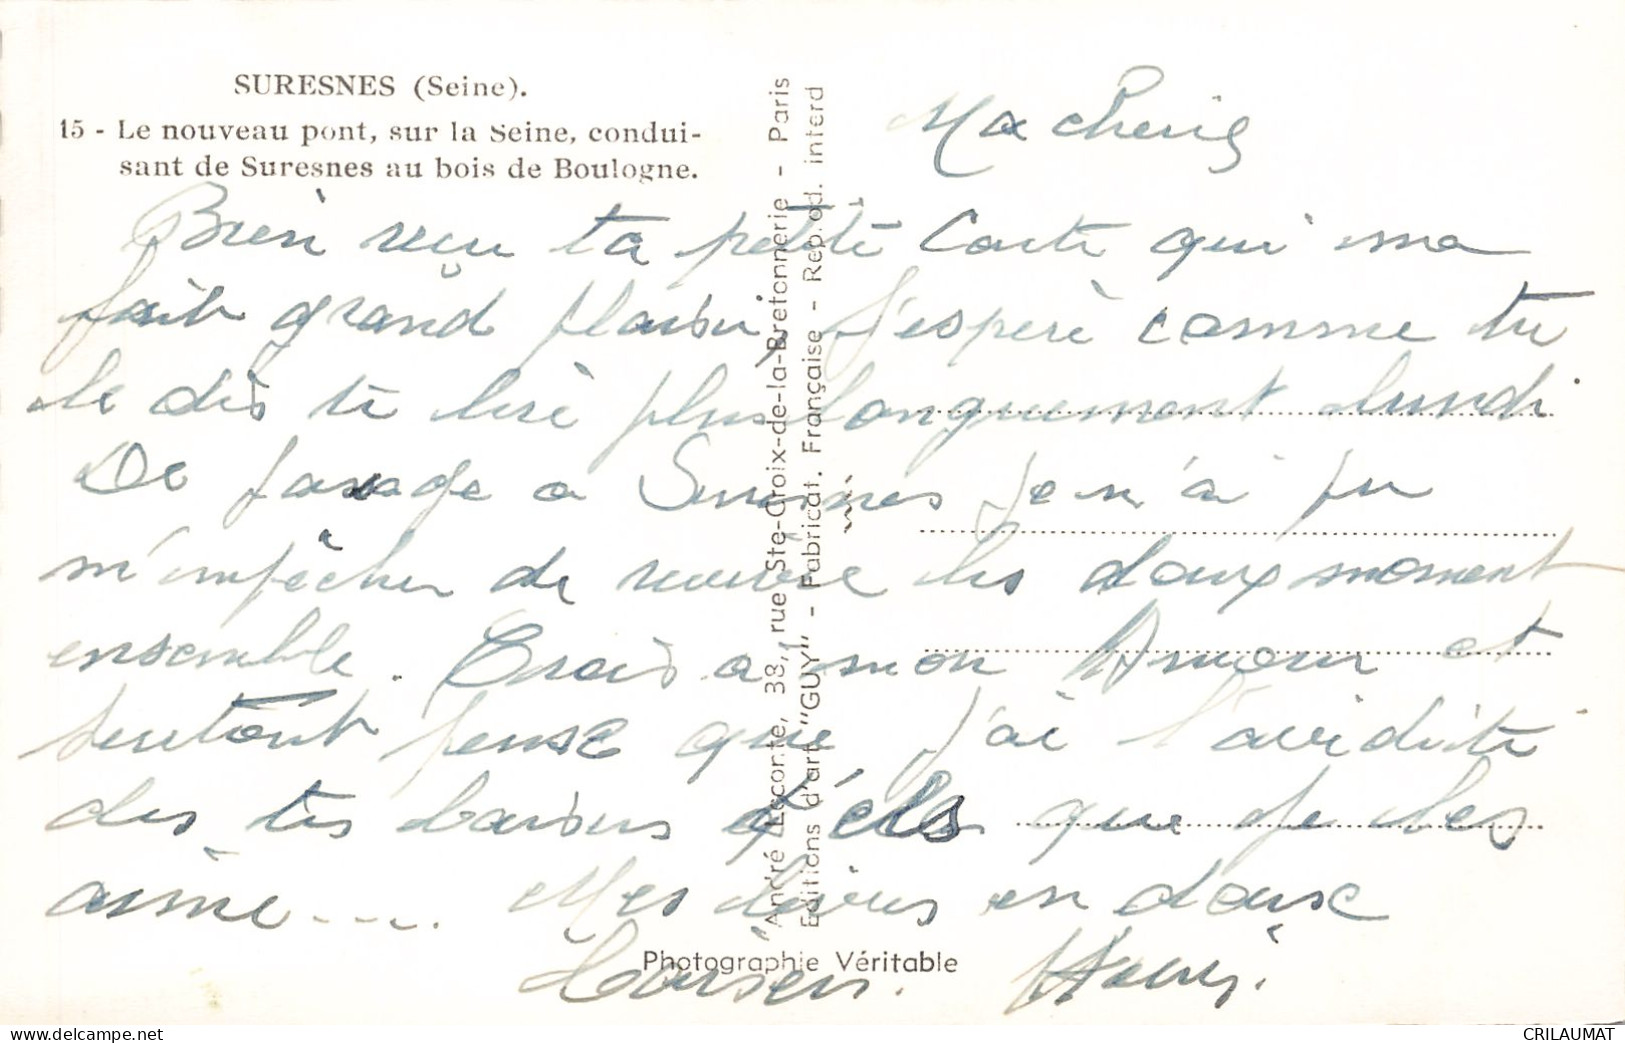 SURESNES (Seine).
15 - Le nouveau pont, sur la Seine, condui-
sant de Suresnes au bois de Boulogne.
Ma cherie
Bien reçu ta petite Carte qui ma
fait grand plaisir, J'espère comme tu
le dis te lire plus longuement lundi
De passage a Suresnes Je n'ai pu
m'empêcher de revivre les doux moment
ensemble. Crois a mon Amour et
surtout pense que j'ai l'avidité
des tes baisers que je les
aime .... Mes lèvres en douse
Henri.
André Leconte, 38, rue Ste-Croix-de-la-Bretonnerie - Paris
Editions d'art "GUY" - Fabricat. Française - Reprod. interd
Photographie Véritable
delcampe.net
CRILAUMAT